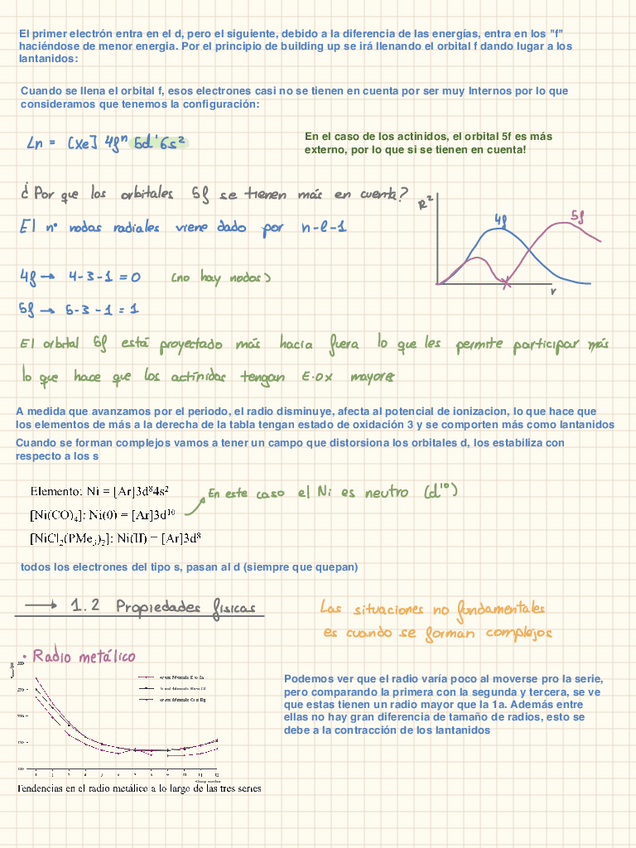 El primer electrón entra en el d, pero el siguiente, debido a la diferencia de las energías, entra en los "f"
haciéndose de menor energia. Por el principio de building up se irá llenando el orbital f dando lugar a los
lantanidos:
Cuando se llena el orbital f, esos electrones casi no se tienen en cuenta por ser muy Internos por lo que
consideramos que tenemos la configuración:
Ln = [Xe] 4fⁿ 5d¹ 6s²
En el caso de los actinidos, el orbital 5f es más
externo, por lo que si se tienen en cuenta!
¿Por que los orbitales 5f se tienen más en cuenta?
R²
4f
5f
r
El nº nodos radiales viene dado por n-l-1
4f → 4-3-1 = 0 (no hay nodos)
5f → 5-3-1 = 1
El orbital 5f está proyectado más hacia fuera lo que les permite participar más
lo que hace que los actínidos tengan E.Ox mayores
A medida que avanzamos por el periodo, el radio disminuye, afecta al potencial de ionizacion, lo que hace que
los elementos de más a la derecha de la tabla tengan estado de oxidación 3 y se comporten más como lantanidos
Cuando se forman complejos vamos a tener un campo que distorsiona los orbitales d, los estabiliza con
respecto a los s
Elemento: Ni = [Ar]3d⁸4s²
En este caso el Ni es neutro (d¹⁰)
[Ni(CO)₄]: Ni(0) = [Ar]3d¹⁰
[NiCl₂(PMe₃)₂]: Ni(II) = [Ar]3d⁸
todos los electrones del tipo s, pasan al d (siempre que quepan)
→ 1.2 Propiedades fisicas
Las situaciones no fundamentales
es cuando se forman complejos
• Radio metálico
Podemos ver que el radio varía poco al moverse pro la serie,
pero comparando la primera con la segunda y tercera, se ve
que estas tienen un radio mayor que la 1a. Además entre
ellas no hay gran diferencia de tamaño de radios, esto se
debe a la contracción de los lantanidos
Tendencias en el radio metálico a lo largo de las tres series